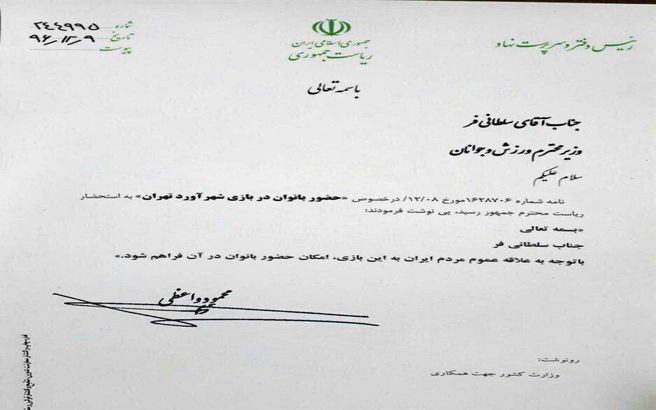 رئیس دفتر و سرپرست نهاد
جمهوری اسلامی ایران
ریاست جمهوری
شماره ۲۴۴۹۹۵
تاریخ ۹۶/۱۲/۹
پیوست
باسمه تعالی
جناب آقای سلطانی فر
وزیر محترم ورزش و جوانان
سلام علیکم
نامه شماره ۱۶۲۸۷۰۶مورخ ۱۲/۰۸/ درخصوص «حضور بانوان در بازی شهرآورد تهران» به استحضار
ریاست محترم جمهور رسید، پی نوشت فرمودند:
«بسمه تعالی
جناب سلطانی فر
باتوجه به علاقه عموم مردم ایران به این بازی، امکان حضور بانوان در آن فراهم شود.»
محمود واعظی
رونوشت:
وزارت کشور جهت همکاری